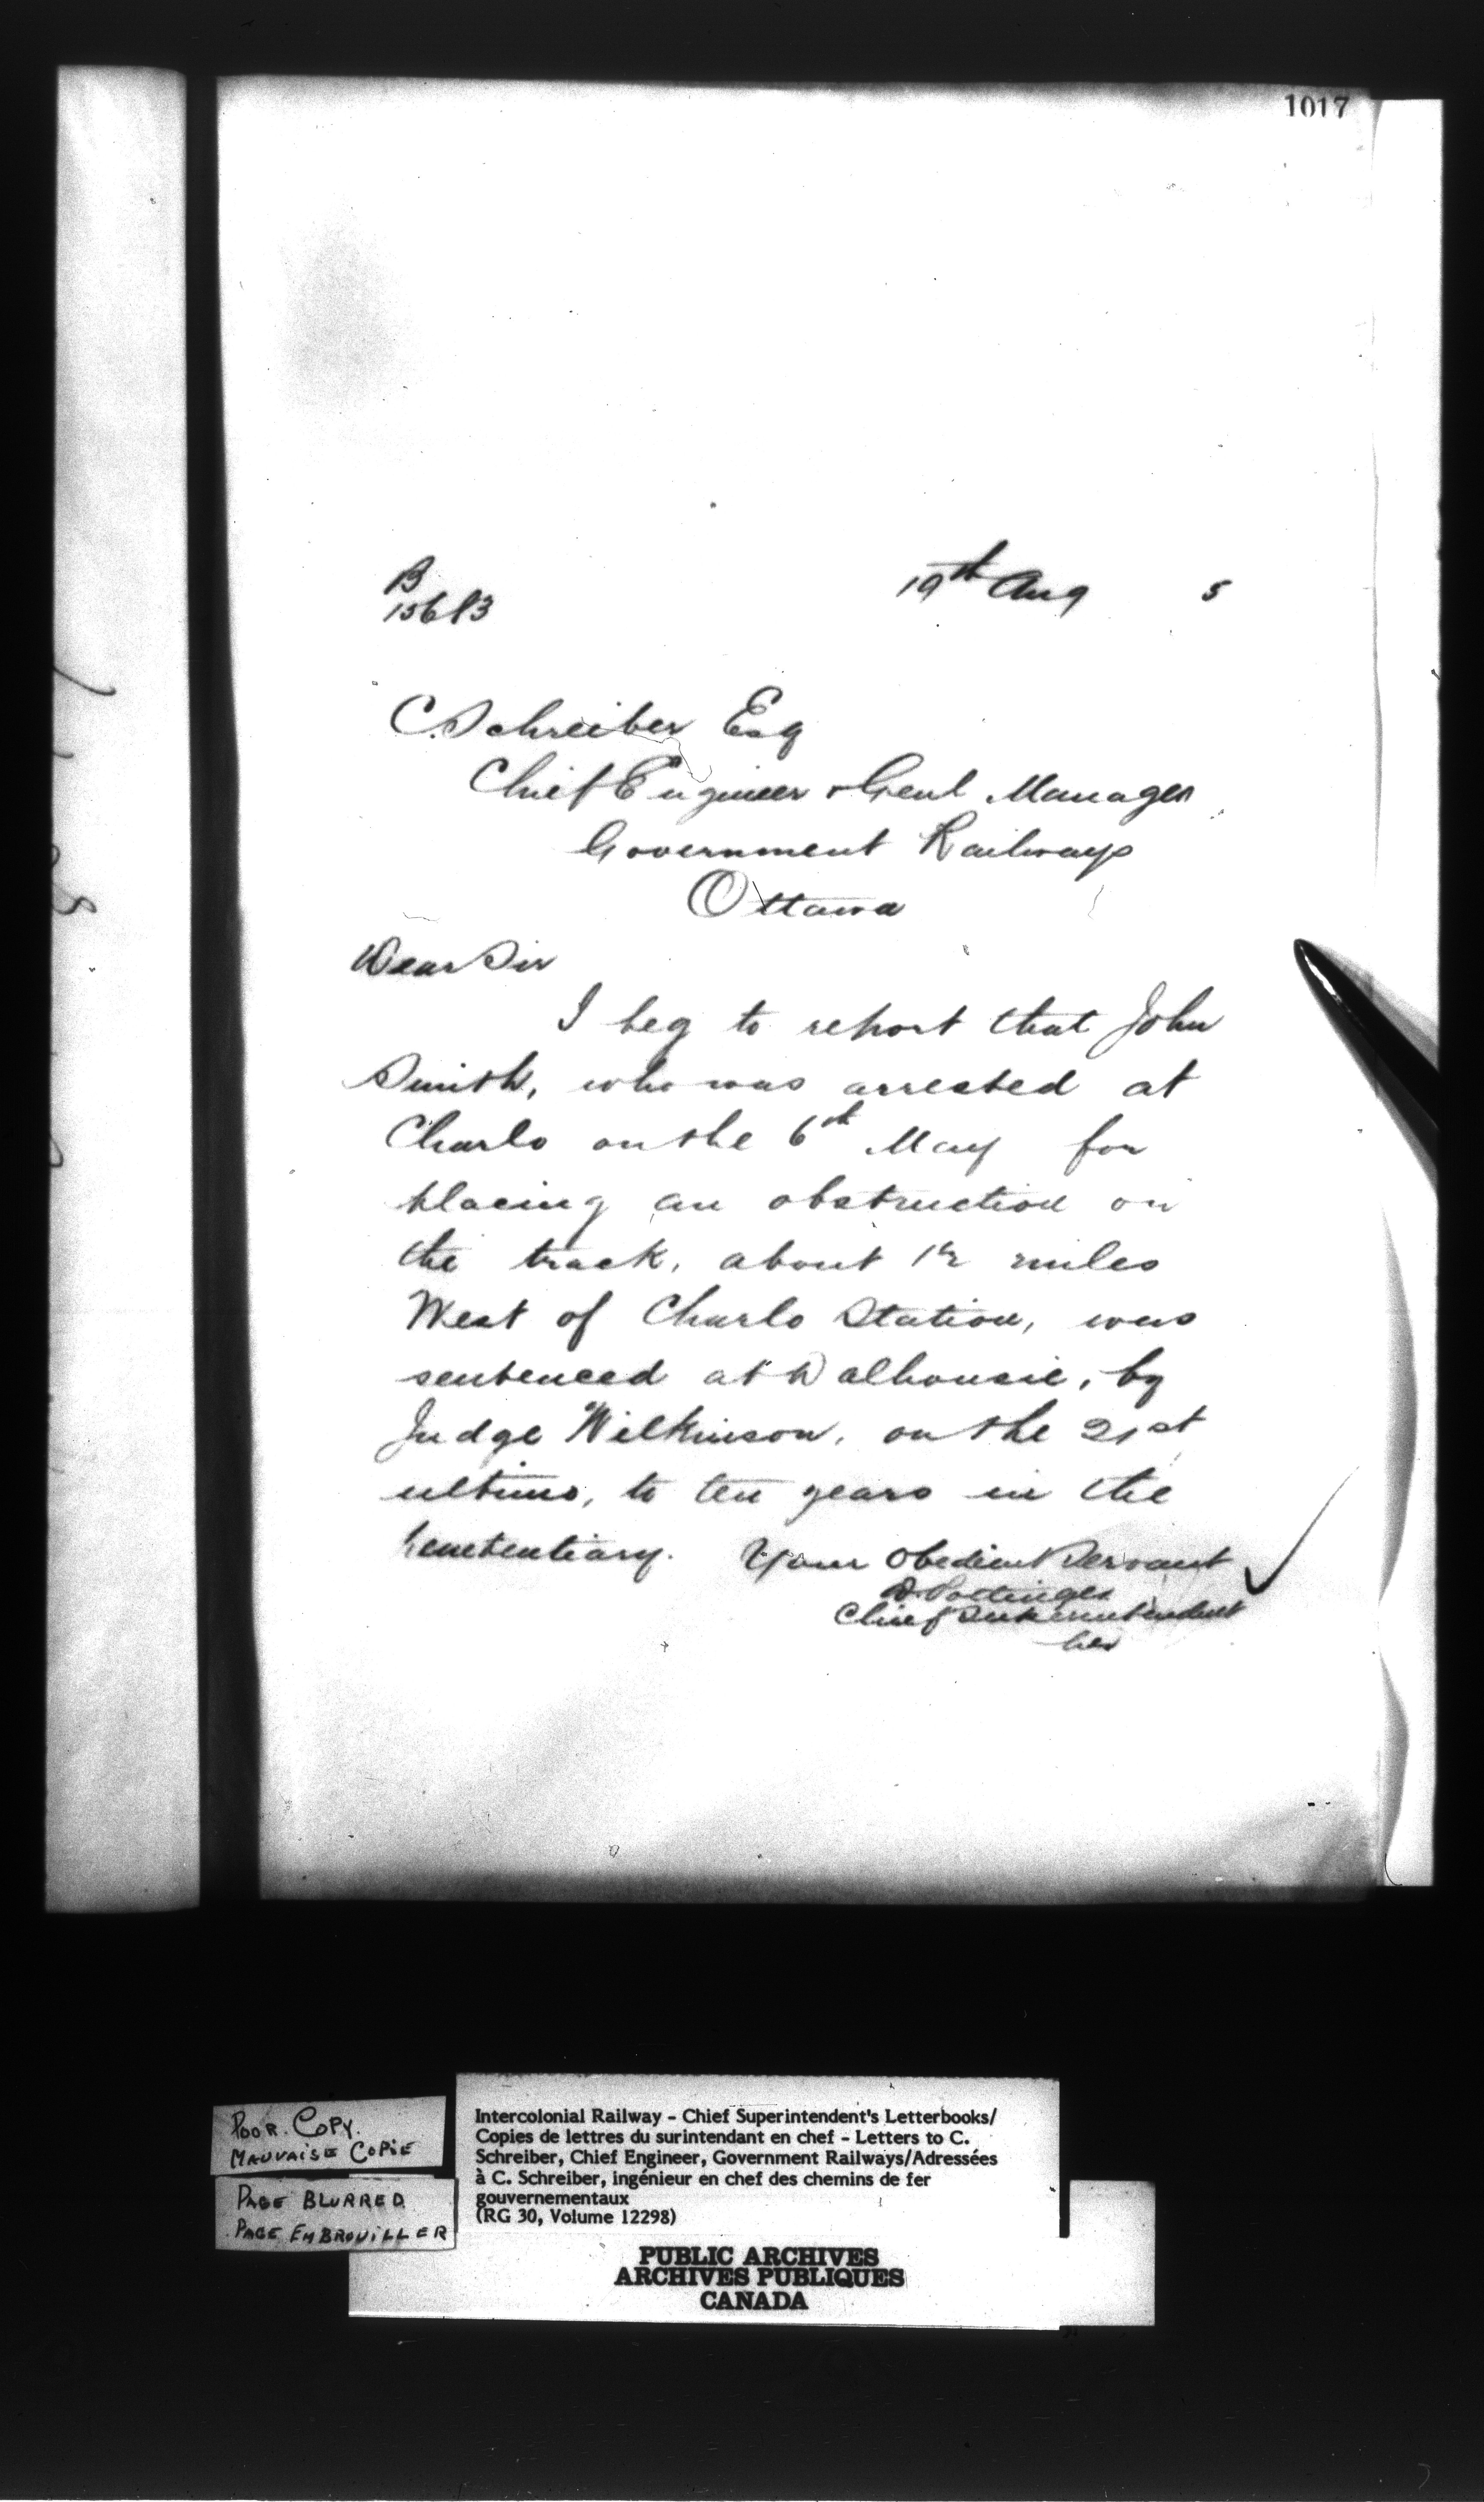 1017
B
15683
19th Aug 5
C. Schreiber Esq
Chief Engineer & Genl Manager
Government Railways
Ottawa
Dear Sir
I beg to report that John
Smith, who was arrested at
Charlo on the 6th May for
placing an obstruction on
the track, about 1½ miles
West of Charlo Station, was
sentenced at Dalhousie, by
Judge Wilkinson, on the 21st
ultimo, to ten years in the
penetentiary. Your Obedient Servant
D. Pottinger
Chief Superintendent
POOR COPY.
MAUVAISE COPIE
PAGE BLURRED
PAGE EMBROUILLER
Intercolonial Railway - Chief Superintendent's Letterbooks/
Copies de lettres du surintendant en chef - Letters to C.
Schreiber, Chief Engineer, Government Railways/Adressées
à C. Schreiber, ingénieur en chef des chemins de fer
gouvernementaux
(RG 30, Volume 12298)
PUBLIC ARCHIVES
ARCHIVES PUBLIQUES
CANADA